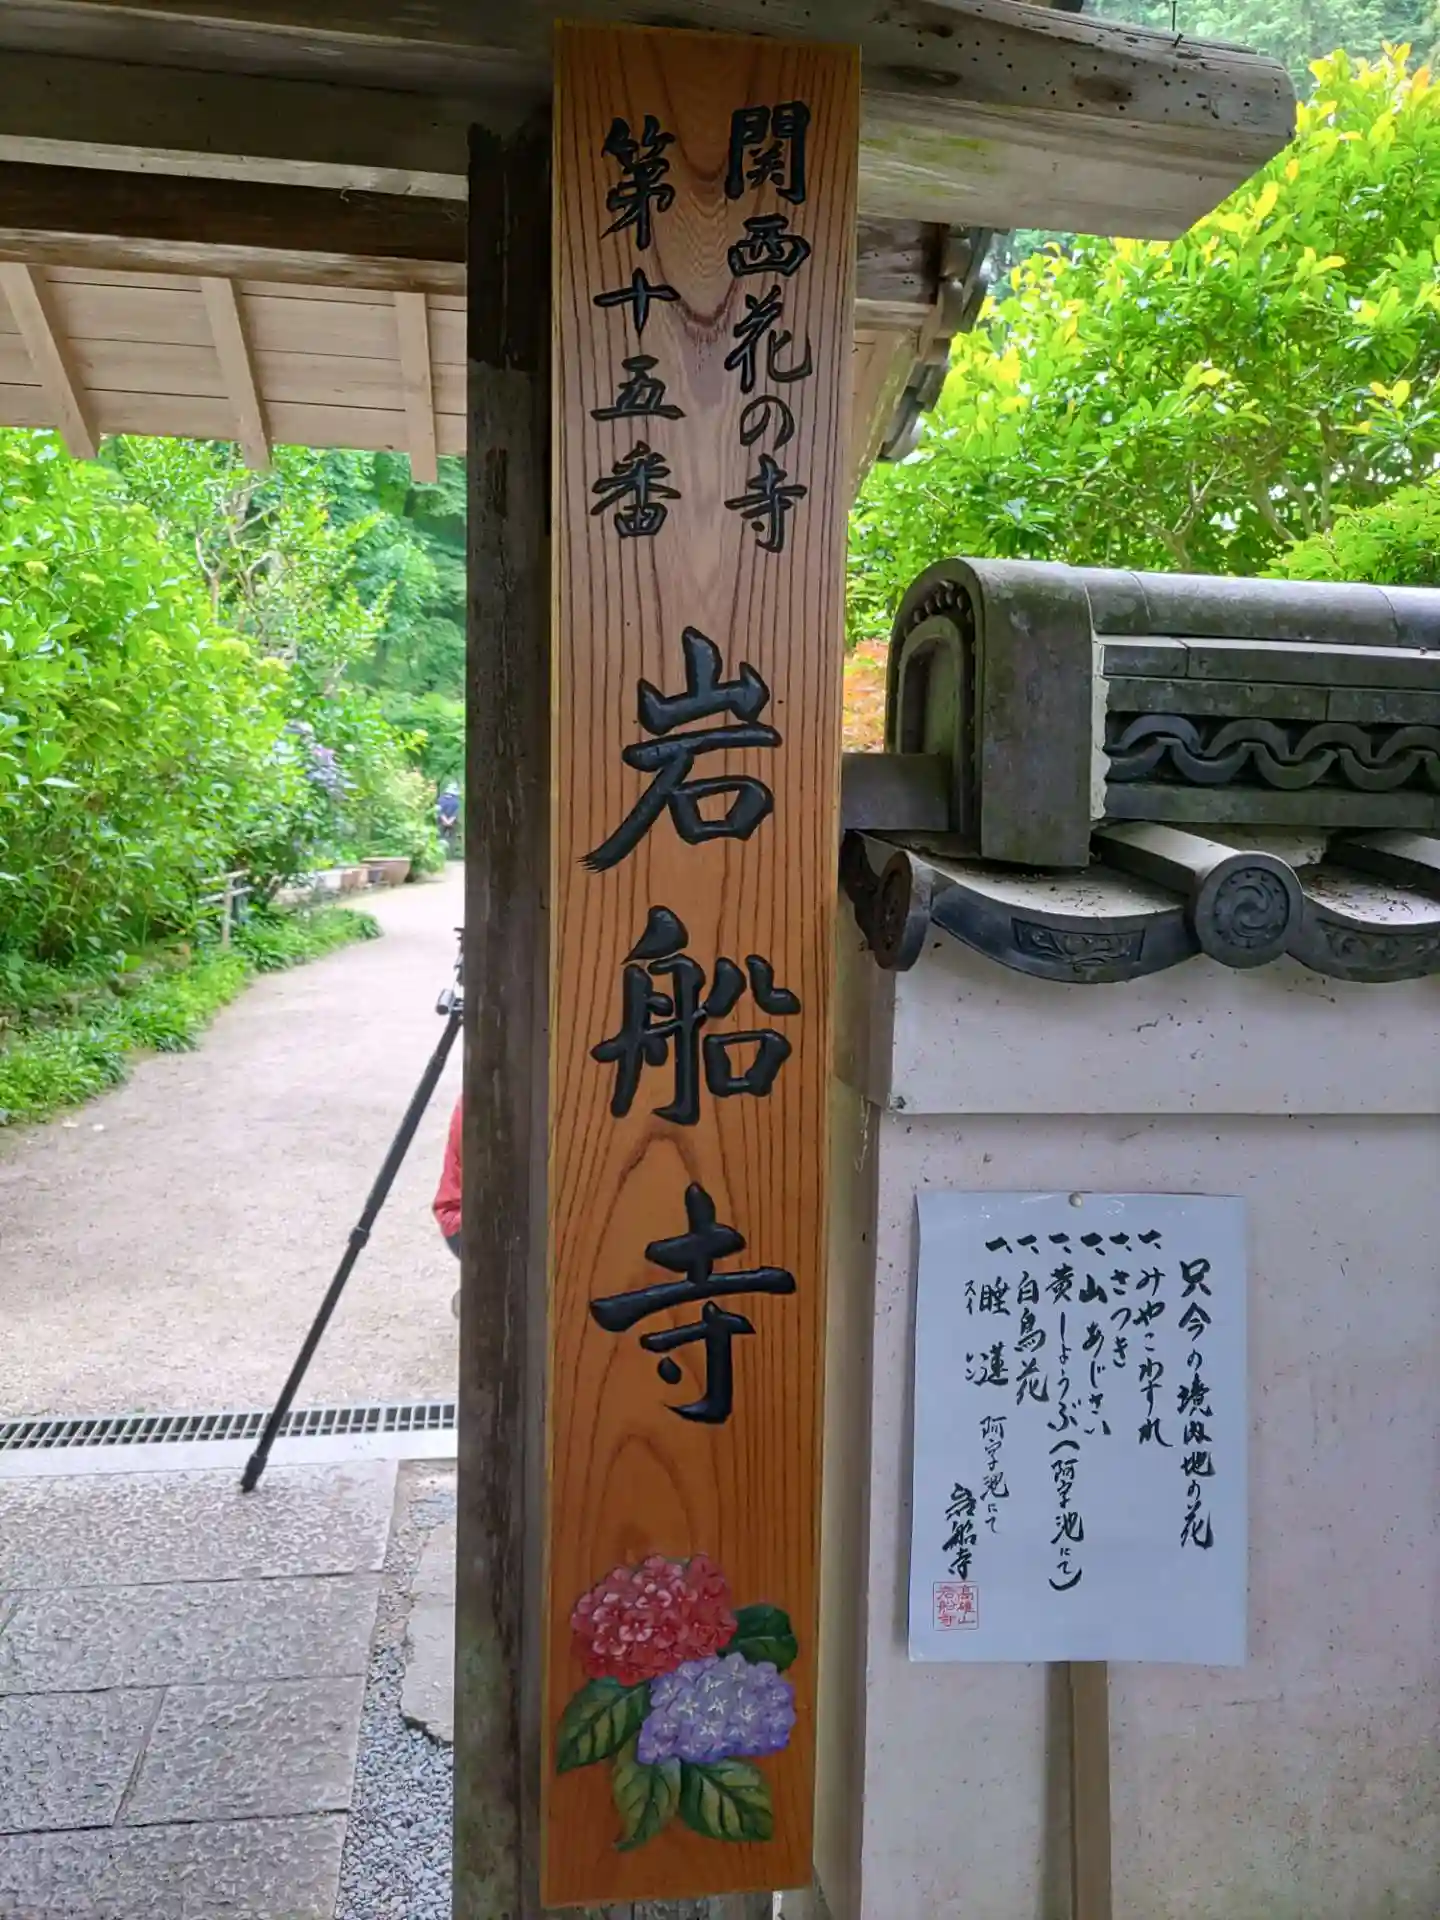 関西花の寺
第十五番
岩船寺
只今の境内地の花
一、みやこわすれ
一、さつき
一、山あじさい
一、黄しょうぶ(阿字池にて)
一、白鳥花
一、睡蓮 阿字池にて
スイ レン
岩船寺
高雄山
岩船寺